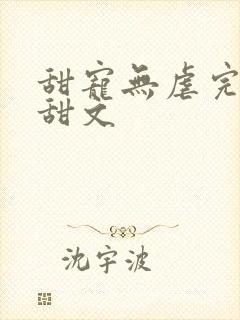 甜寵無虐完
甜文
沈宇波